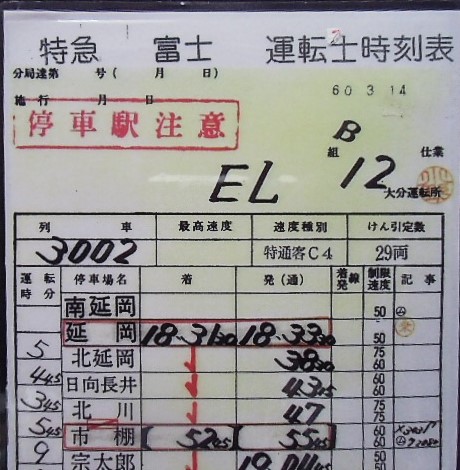 特急 富士 運転士時刻表
分局達第 号( 月 日)
施行 月 日
60 3 14
停車駅注意
B
組 12 仕業
EL
大分運転所
列車 最高速度 速度種別 けん引定数
3002 特通客C4 29両
運転時分 停車場名 着 発(通) 着発線 制限速度 記事
南延岡 50
延岡 18-31 30 18-33 30 50
5 北延岡 38 30 75 60
4 45 日向長井 43 15 60 60
3 45 北川 47 75 60
5 45 市棚 52 45 55 45 60 60
9 宗太郎 19 04 45 50